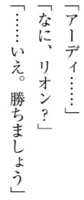 「アーディ……」
「なに、リオン？」
「……いえ。勝ちましょう」